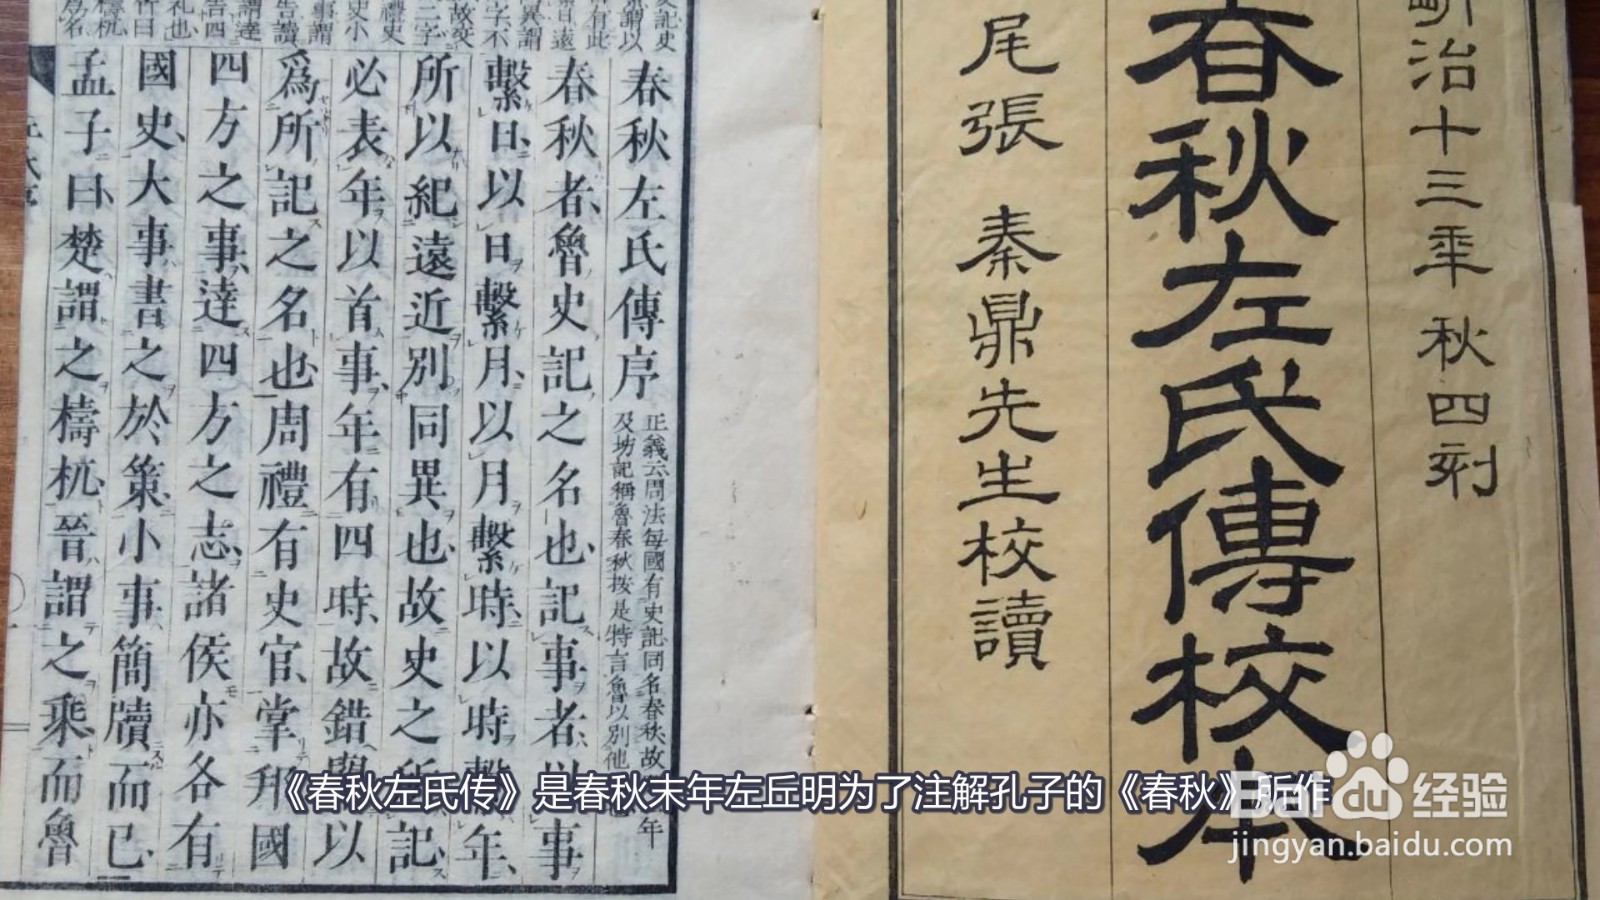 明治十三年 秋四刻
春秋左氏傳校本
尾張 秦鼎先生校讀
春秋左氏傳序
正義云周法每國有史記同名春秋故
及坊記稱魯春秋按是特言魯以別他
春秋者魯史記之名也記事者以事
繫日以日繫月以月繫時以時繫年
所以紀遠近別同異也故史之所記
必表年以首事年有四時故錯舉以
爲所記之名也周禮有史官掌邦國
四方之事達四方之志諸侯亦各有
國史大事書之於策小事簡牘而已
孟子曰楚謂之檮杌晉謂之乘而魯
《春秋左氏传》是春秋末年左丘明为了注解孔子的《春秋》所作
Bai 经验
jingyan.baidu.com